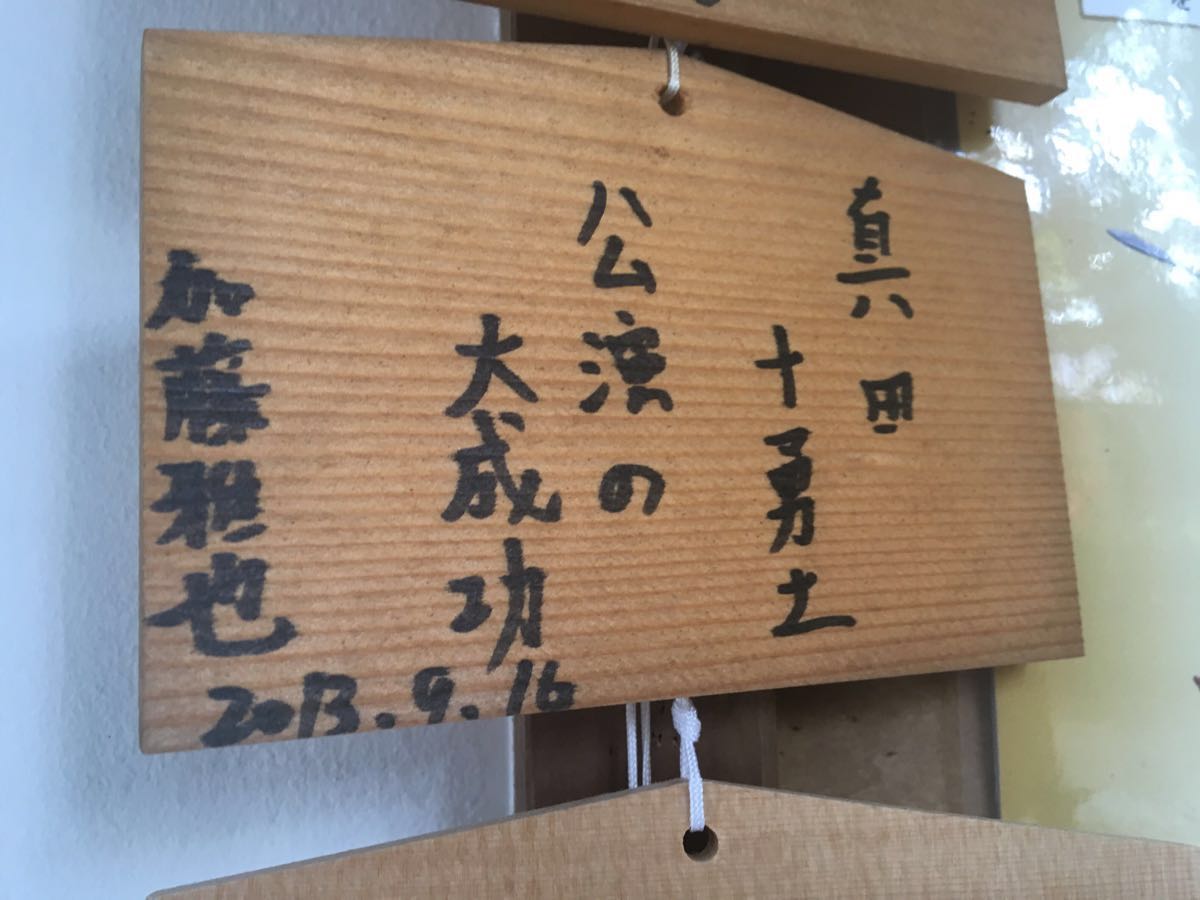 真田
十勇士
公演の
大成功
加藤雅也
2013.9.16